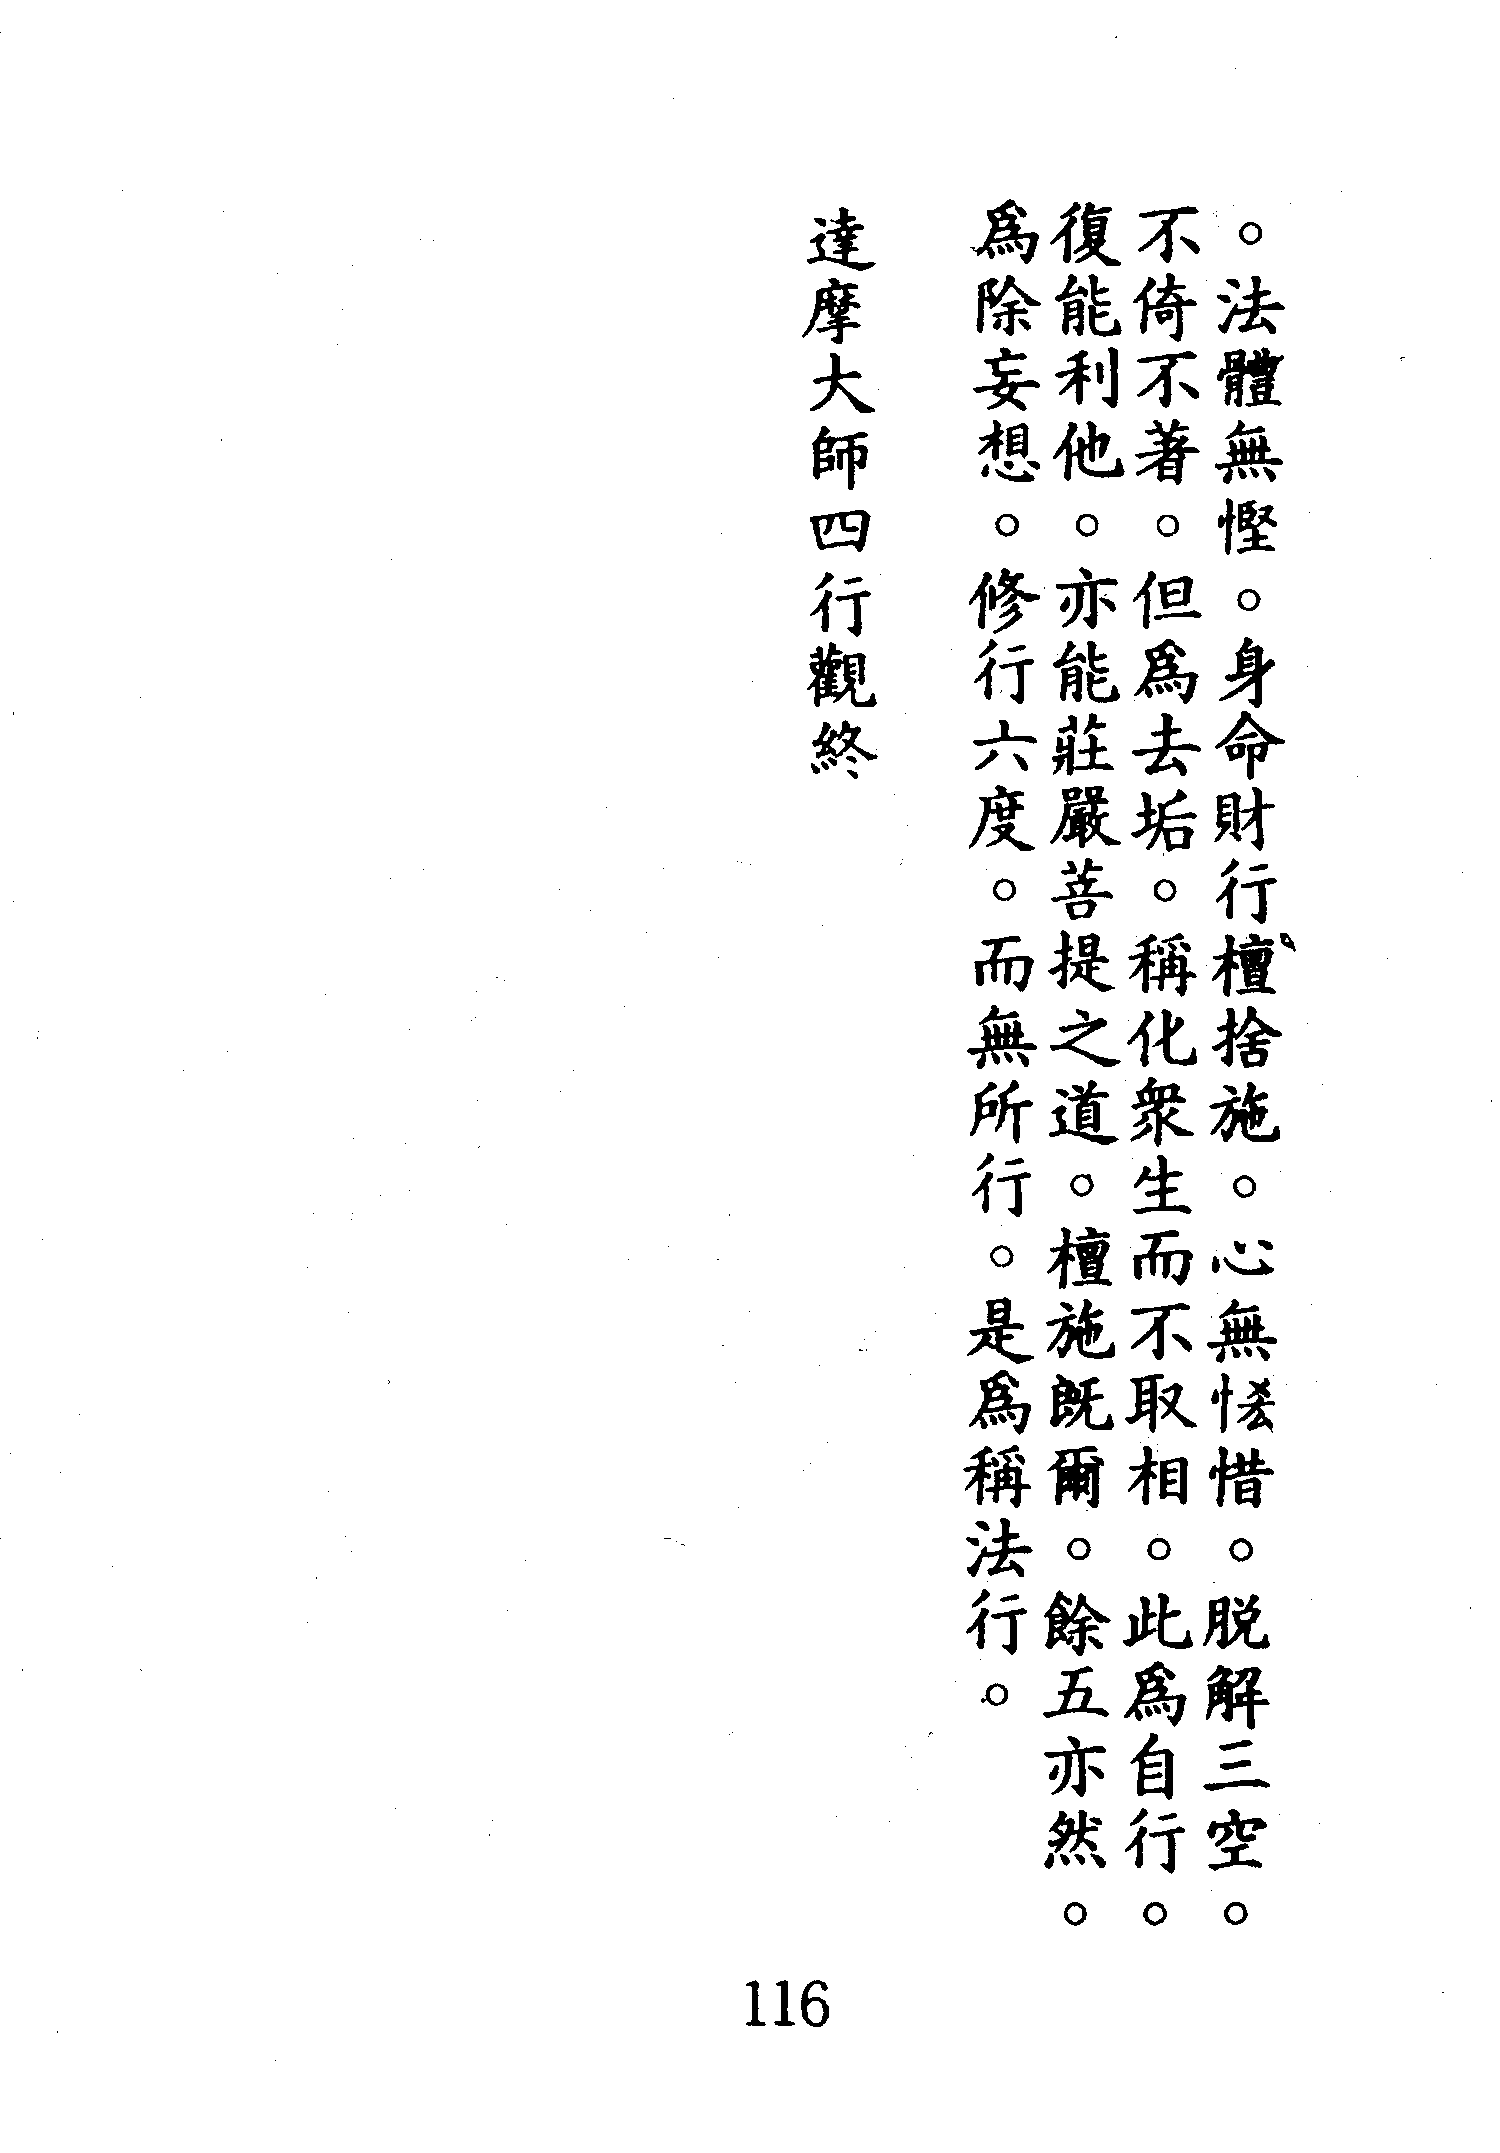 。法體無慳。身命財行檀捨施。心無悋惜。脱解三空。
不倚不著。但爲去垢。稱化衆生而不取相。此爲自行。
復能利他。亦能莊嚴菩提之道。檀施既爾。餘五亦然。
爲除妄想。修行六度。而無所行。是爲稱法行。
達摩大師四行觀終
116